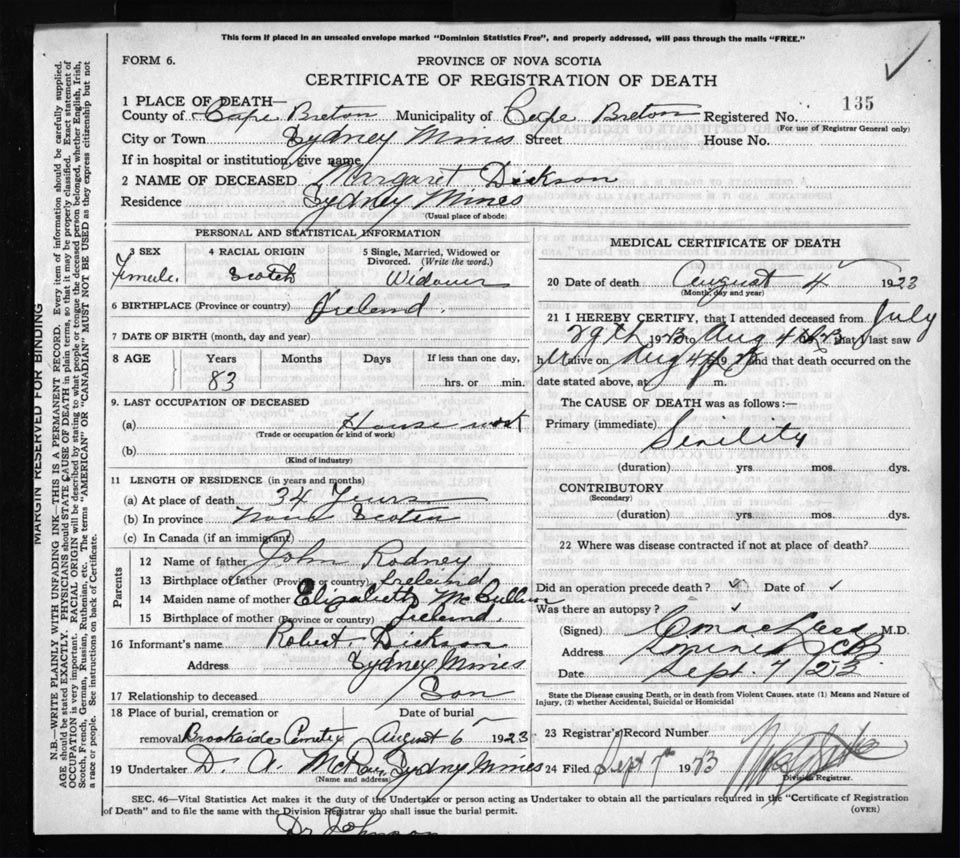 This form if placed in an unsealed envelope marked "Dominion Statistics Free", and properly addressed, will pass through the mails "FREE."
FORM 6.
PROVINCE OF NOVA SCOTIA
CERTIFICATE OF REGISTRATION OF DEATH
1 PLACE OF DEATH—
County of Cape Breton Municipality of Cape Breton Registered No. 135
(For use of Registrar General only)
City or Town Sydney Mines Street House No.
If in hospital or institution, give name
2 NAME OF DECEASED Margaret Dickson
Residence Sydney Mines
(Usual place of abode)
PERSONAL AND STATISTICAL INFORMATION
3 SEX 4 RACIAL ORIGIN 5 Single, Married, Widowed or Divorced. (Write the word.)
Female. Scotch Widower
6 BIRTHPLACE (Province or country) Ireland.
7 DATE OF BIRTH (month, day and year)
8 AGE Years Months Days If less than one day,
83 hrs. or min.
9. LAST OCCUPATION OF DECEASED
(a) House work
(Trade or occupation or kind of work)
(b)
(Kind of industry)
11 LENGTH OF RESIDENCE (in years and months)
(a) At place of death 34 Years
(b) In province Nova Scotia
(c) In Canada (if an immigrant)
Parents
12 Name of father John Rodney
13 Birthplace of father (Province or country) Ireland
14 Maiden name of mother Elizabeth
15 Birthplace of mother (Province or country) Ireland.
16 Informant's name Robert Dickson
Address Sydney Mines
17 Relationship to deceased Son
18 Place of burial, cremation or removal Date of burial
Brookside Cemetry August 6 1923
19 Undertaker D. A. McRae, Sydney Mines
(Name and address)
MEDICAL CERTIFICATE OF DEATH
20 Date of death August 4 1923
(Month, day and year)
21 I HEREBY CERTIFY, that I attended deceased from July
29th 1923 to Aug 4th 1923, that I last saw
her alive on Aug 4th 1923 and that death occurred on the
date stated above, at m.
The CAUSE OF DEATH was as follows:—
Primary (immediate) Senility
(duration) yrs. mos. dys.
CONTRIBUTORY
(Secondary)
(duration) yrs. mos. dys.
22 Where was disease contracted if not at place of death?
Did an operation precede death? Date of
Was there an autopsy?
(Signed) M.D.
Address
Date Sept. 7/23
State the Disease causing Death, or in death from Violent Causes, state (1) Means and Nature of Injury, (2) whether Accidental, Suicidal or Homicidal
23 Registrar's Record Number
24 Filed Sept 7th 1923
Division Registrar.
SEC. 46—Vital Statistics Act makes it the duty of the Undertaker or person acting as Undertaker to obtain all the particulars required in the "Certificate of Registration
of Death" and to file the same with the Division Registrar who shall issue the burial permit. (OVER)
Dr Johnson
MARGIN RESERVED FOR BINDING
N.B.—WRITE PLAINLY WITH UNFADING INK—THIS IS A PERMANENT RECORD. Every item of information should be carefully supplied.
AGE should be stated EXACTLY. PHYSICIANS should STATE CAUSE OF DEATH in plain terms, so that it may be properly classified. Exact statement of
OCCUPATION is very important. RACIAL ORIGIN will be described by stating to what people or tongue the deceased person belonged, whether English, Irish,
Scotch, French, German, Russian, Ruthenian, etc. The terms "AMERICAN" OR "CANADIAN" MUST NOT BE USED as they express citizenship but not
a race or people. See instructions on back of Certificate.